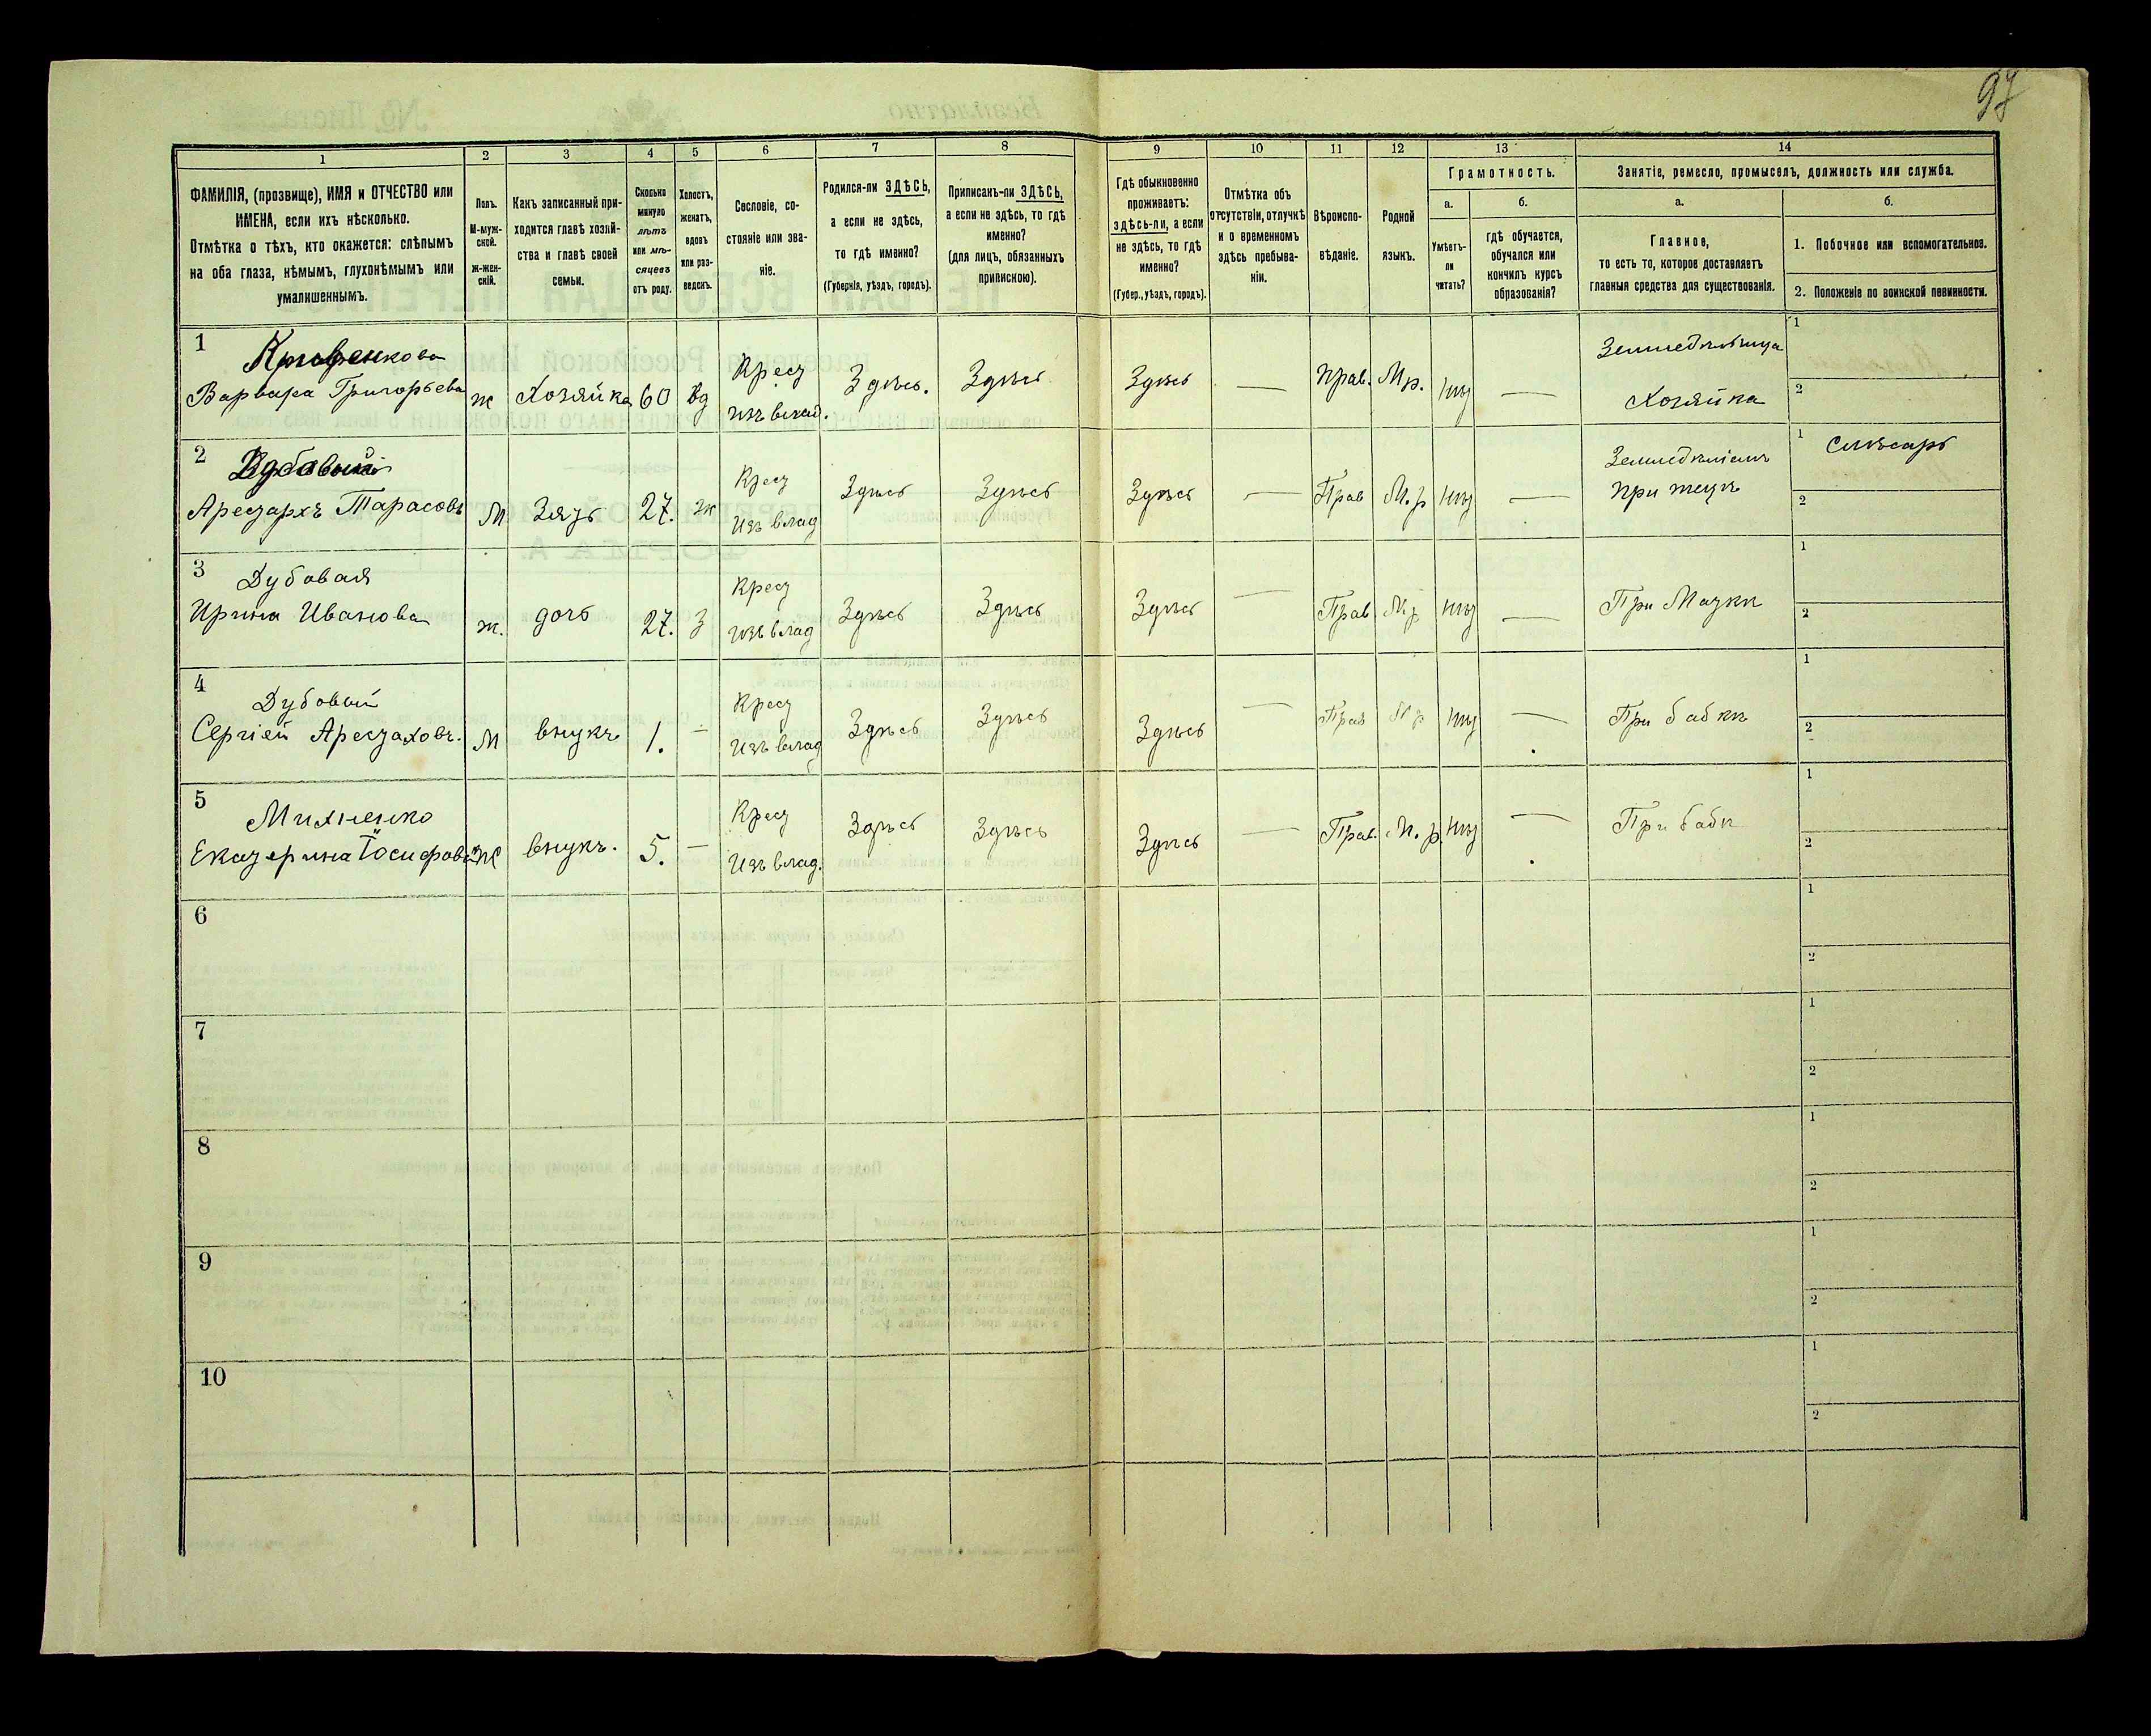 97
1
2
3
4
5
6
7
8
9
10
11
12
13
14
ФАМИЛІЯ, (прозвище), ИМЯ и ОТЧЕСТВО или
ИМЕНА, если ихъ нѣсколько.
Отмѣтка о тѣхъ, кто окажется: слѣпымъ
на оба глаза, нѣмымъ, глухонѣмымъ или
умалишеннымъ.
Полъ.
М-муж-
ской.
Ж-жен-
скій.
Какъ записанный при-
ходится главѣ хозяй-
ства и главѣ своей
семьи.
Сколько
минуло
лѣтъ
или мѣ-
сяцевъ
отъ роду.
Холостъ,
женатъ,
вдовъ
или раз-
веденъ.
Сословіе, со-
стояніе или зва-
ніе.
Родился-ли ЗДѢСЬ,
а если не здѣсь,
то гдѣ именно?
(Губернія, уѣздъ, городъ).
Приписанъ-ли ЗДѢСЬ,
а если не здѣсь, то гдѣ
именно?
(для лицъ, обязанныхъ
припискою).
Гдѣ обыкновенно
проживаетъ:
здѣсь-ли, а если
не здѣсь, то гдѣ
именно?
(Губер., уѣздъ, городъ).
Отмѣтка объ
отсутствіи, отлучкѣ
и о временномъ
здѣсь пребыва-
ніи.
Вѣроиспо-
вѣданіе.
Родной
языкъ.
Грамотность.
а.
Умѣетъ-
ли
читать?
б.
гдѣ обучается,
обучался или
кончилъ курсъ
образованія?
Занятіе, ремесло, промыселъ, должность или служба.
а.
Главное,
то есть то, которое доставляетъ
главныя средства для существованія.
б.
1. Побочное или вспомогательное.
2. Положеніе по воинской повинности.
1
Варвара Григорьева ж Хозяйка 60 вд Крест изъ влад. Здѣсь. Здѣсь Здѣсь — Прав. М.р. нѣт — Земледѣлица
Хозяйка
1
2
2
Арестархъ Тарасовъ М Зять 27. ж Крест Изъ влад Здѣсь Здѣсь Здѣсь — Прав М.р нѣт — Земледѣліемъ
при тещѣ
1 Слѣсарь
2
3 Дубовая
Ирина Иванова ж. дочь 27. З Крест изъ влад Здѣсь Здѣсь Здѣсь — Прав М р нѣт — При Маткѣ
1
2
4 Дубовый
Сергіей Арестаховъ. М внукъ 1. — Крест Изъ влад Здѣсь Здѣсь Здѣсь — Прав М р нѣт — При бабкѣ
1
2
5 Михненко
Екатерина Іосифова Ж внукъ. 5. — Крест Изъ влад. Здѣсь Здѣсь Здѣсь — Прав. М. р. нѣт — При бабк
1
2
6
1
2
7
1
2
8
1
2
9
1
2
10
1
2